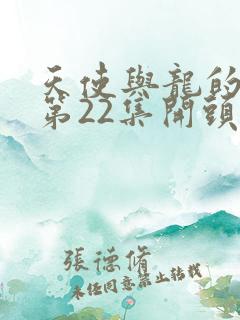 天使與龍的
第22集開頭
張德脩
未经同意禁止转载